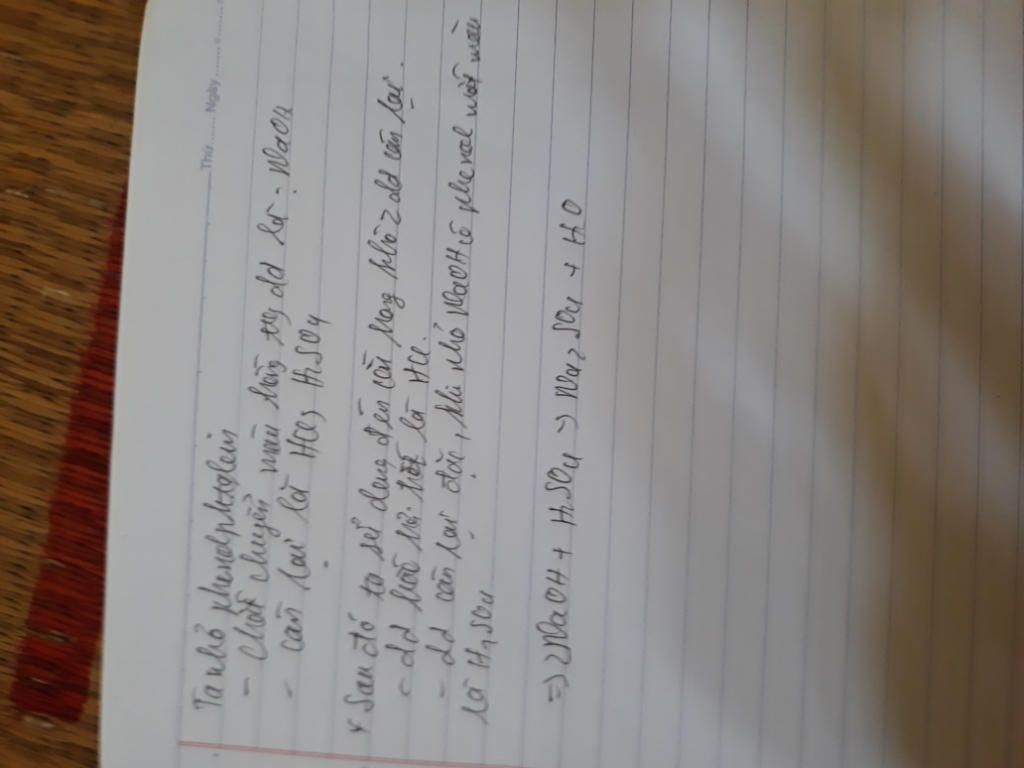 Thứ....... Ngày.......
Ta nhỏ phenolphtalein
- Chất chuyển màu hồng thì dd là NaOH
- còn lại là HCl, H2SO4
* Sau đó ta sẽ dùng đèn cồn hơ 2 dd còn lại.
- dd là HCl.
- dd còn lại đặc, khi nhỏ NaOH có phenol mất màu
là H2SO4
=> 2NaOH + H2SO4 -> Na2SO4 + H2O